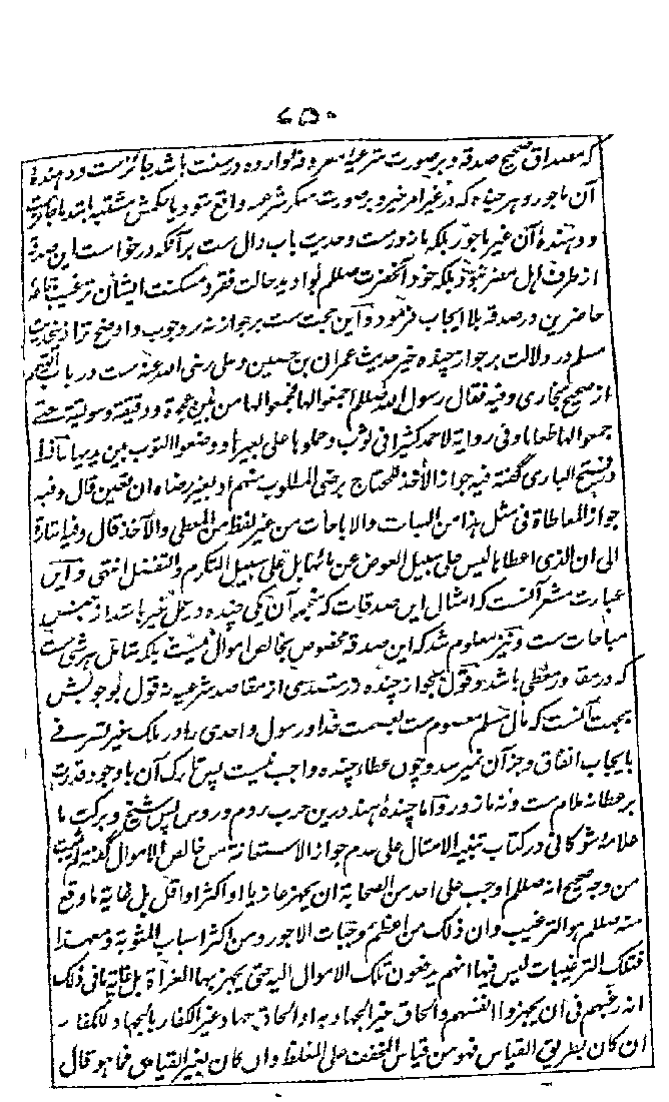 ۶۵۰
که مصداق صحیح صدقه و بر صورت شرعیه معروفه وارده در سنت باشد جائز ست و دهندهٔ
آن ماجور و هر چنده که در غیر امر خیر و بر صورت منکر شرعیه واقع شود یا
و دهندهٔ آن غیر ماجور بلکه مازور ست و حدیث باب دال ست بر آنکه درخواست این صدقه
از طرف اهل مضر نبود بلکه خود آنحضرت صللم او دید حالت فقر و مسکنت ایشان ترغیب
حاضرین در صدقه بلا ایجاب فرمود و این حجت ست بر جواز نه بر وجوب و اوضح تر از حدیث
مسلم در دلالت بر جواز چنده خیر حدیث عمران بن حسین و علی رضی الله عنه ست در باب التیمم
از صحیح بخاری وفیه فقال رسول الله صللم اجمعوا لها فجمعوا لها من بین عجوة ودقیقة وسویقة حتی
جمعوا لها طعاما وفی روایة لاحمد کثیرا فی ثوب وحملوها علی بعیرها ووضعوا الثوب بین یدیها
در فتح الباری گفته فیه جواز الأخذ للمحتاج برضی المطلوب منهم او بغیر رضاه ان تعین قال وفیه
جواز المعاطاة فی مثل هذا من الهبات والاباحات من غیر لفظ من المعطی والآخذ قال وفیه اشارة
الی ان الذی اعطاها لیس علی سبیل العوض عن مائها بل علی سبیل التکرم والتفضل انتهی و این
عبارت مشعر آنست که امثال این صدقات که منجمله آن یکی چنده در محل خیر باشد از جنس
مباحات ست و نیز معلوم شد که این صدقه مخصوص بخالص اموال نیست بلکه شامل هر شی ست
که در مقدور معطی باشد و قول بجواز چنده در مقصدی از مقاصد شرعیه نه قول بوجوبش
بجهت آنست که مال مسلم معصوم ست بعصمت خدا و رسول و احدی را در ملک غیر تصرفے
بایجاب انفاق و جز آن نمیرسد و چون عطاء چنده واجب نیست پس تارک آن با وجود قدرت
بر عطا نه ملام ست و نه مازور و اما چندهٔ هند درین حرب روم و روس پس شیخ و برکت ما
علامه شوکانی در کتاب تنبیه الامثال علی عدم جواز الاستعانة من خالص الاموال گفته لم یثبت
من وجه صحیح انه صللم اوجب علی احد من الصحابة ان یجهز غازیا او اکثر او اقل بل غایة ما وقع
منه صللم هو الترغیب وان ذلک من اعظم موجبات الاجور ومن اکثر اسباب المثوبة ومع هذا
فتلک الترغیبات لیس فیها انهم یدفعون تلک الاموال الیه حتی یجهز بها الغزاة بل غایة ما فی ذلک
انه رغبهم فی ان یجهزوا انفسهم والحاق غیر الجهاد به او الحاق جهاد غیر الکفار بالجهاد للکفار
ان کان بطریق القیاس فهو من قیاس المخفف علی المغلظ وان کان بغیر القیاس فما هو قال